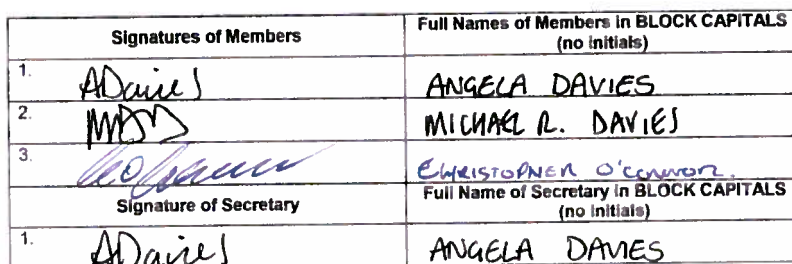 Signatures of Members Full Names of Members in BLOCK CAPITALS (no initials)
1. ADavies ANGELA DAVIES
2. MICHAEL R. DAVIES
3. CHRISTOPHER O'CONNOR.
Signature of Secretary Full Name of Secretary in BLOCK CAPITALS (no initials)
1. ADavies ANGELA DAVIES